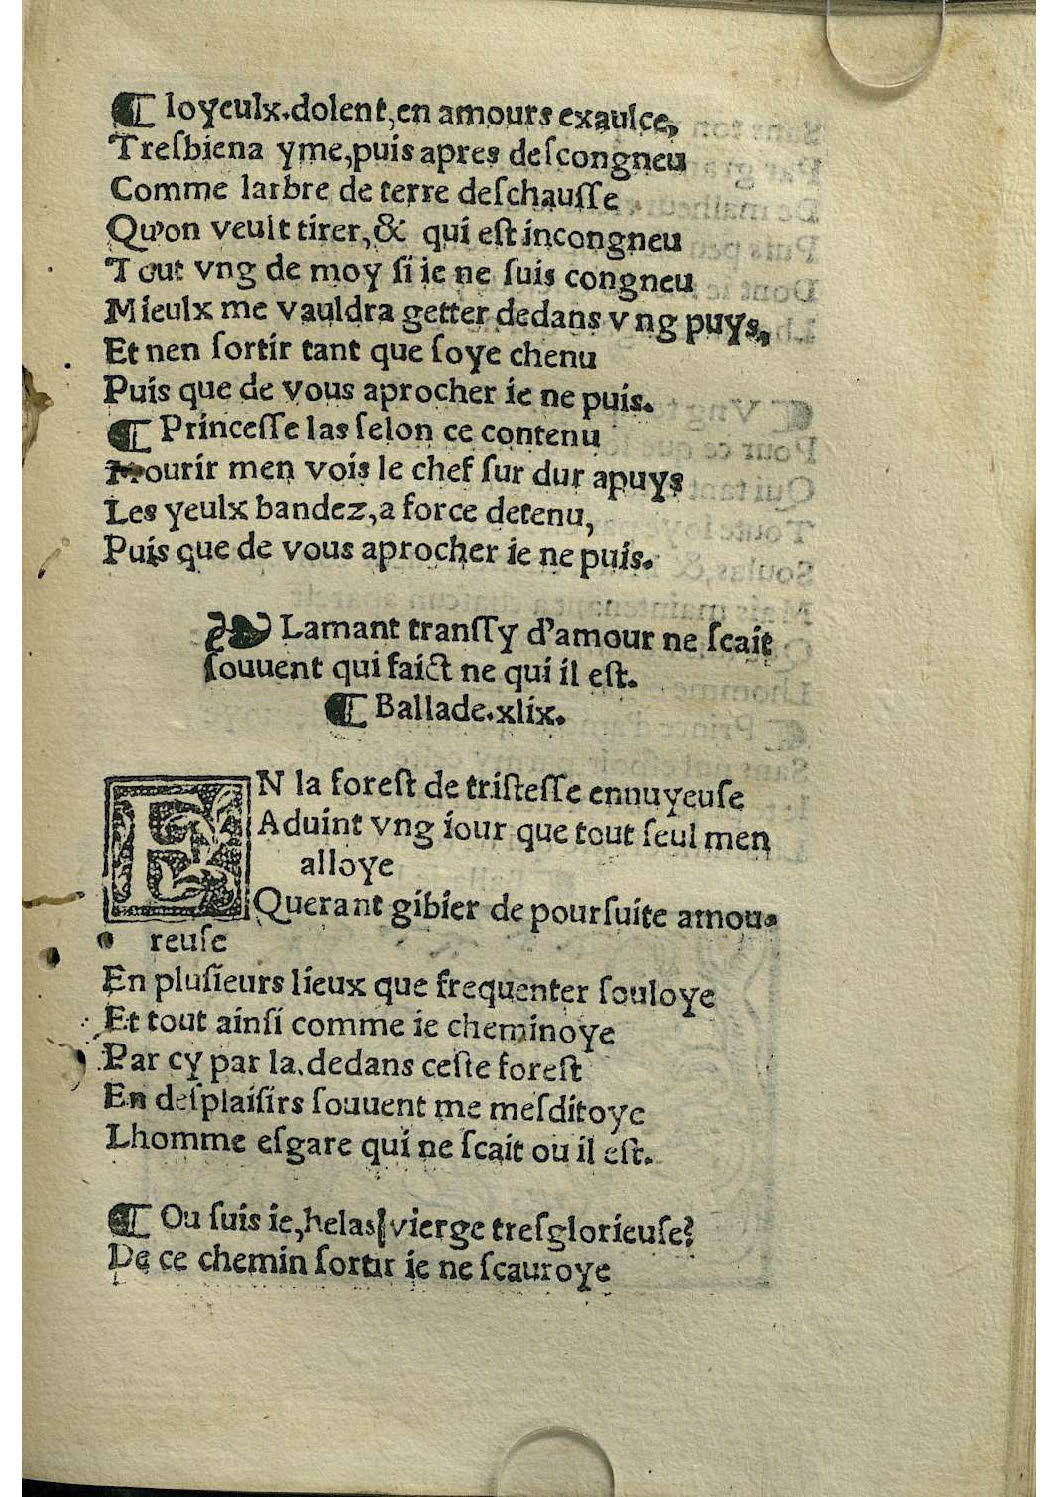 ¶ Ioyeulx.dolent,en amours exaulce,
Treſbiena yme,puis apres deſcongneu
Comme larbre de terre deſchauſſe
Qu'on veult tirer,& qui eſt incongneu
Tout vng de moy ſi ie ne ſuis congneu
Mieulx me vauldra getter dedans vng puys,
Et nen ſortir tant que ſoye chenu
Puis que de vous aprocher ie ne puis.
¶ Princeſſe las ſelon ce contenu
Mourir men vois le chef ſur dur apuys
Les yeulx bandez,a force detenu,
Puis que de vous aprocher ie ne puis.
❧ Lamant tranſſy d'amour ne ſcait
ſouuent qui faict ne qui il eſt.
¶ Ballade.xlix.
EN la foreſt de triſteſſe ennuyeuſe
Aduint vng iour que tout ſeul men
alloye
Querant gibier de pourſuite amou-
reuſe
En pluſieurs lieux que frequenter ſouloye
Et tout ainſi comme ie cheminoye
Par cy par la.dedans ceſte foreſt
En deſplaiſirs ſouuent me meſditoye
Lhomme eſgare qui ne ſcait ou il eſt.
¶ Ou ſuis ie,helas! vierge treſglorieuſe?
De ce chemin ſortir ie ne ſcauroye